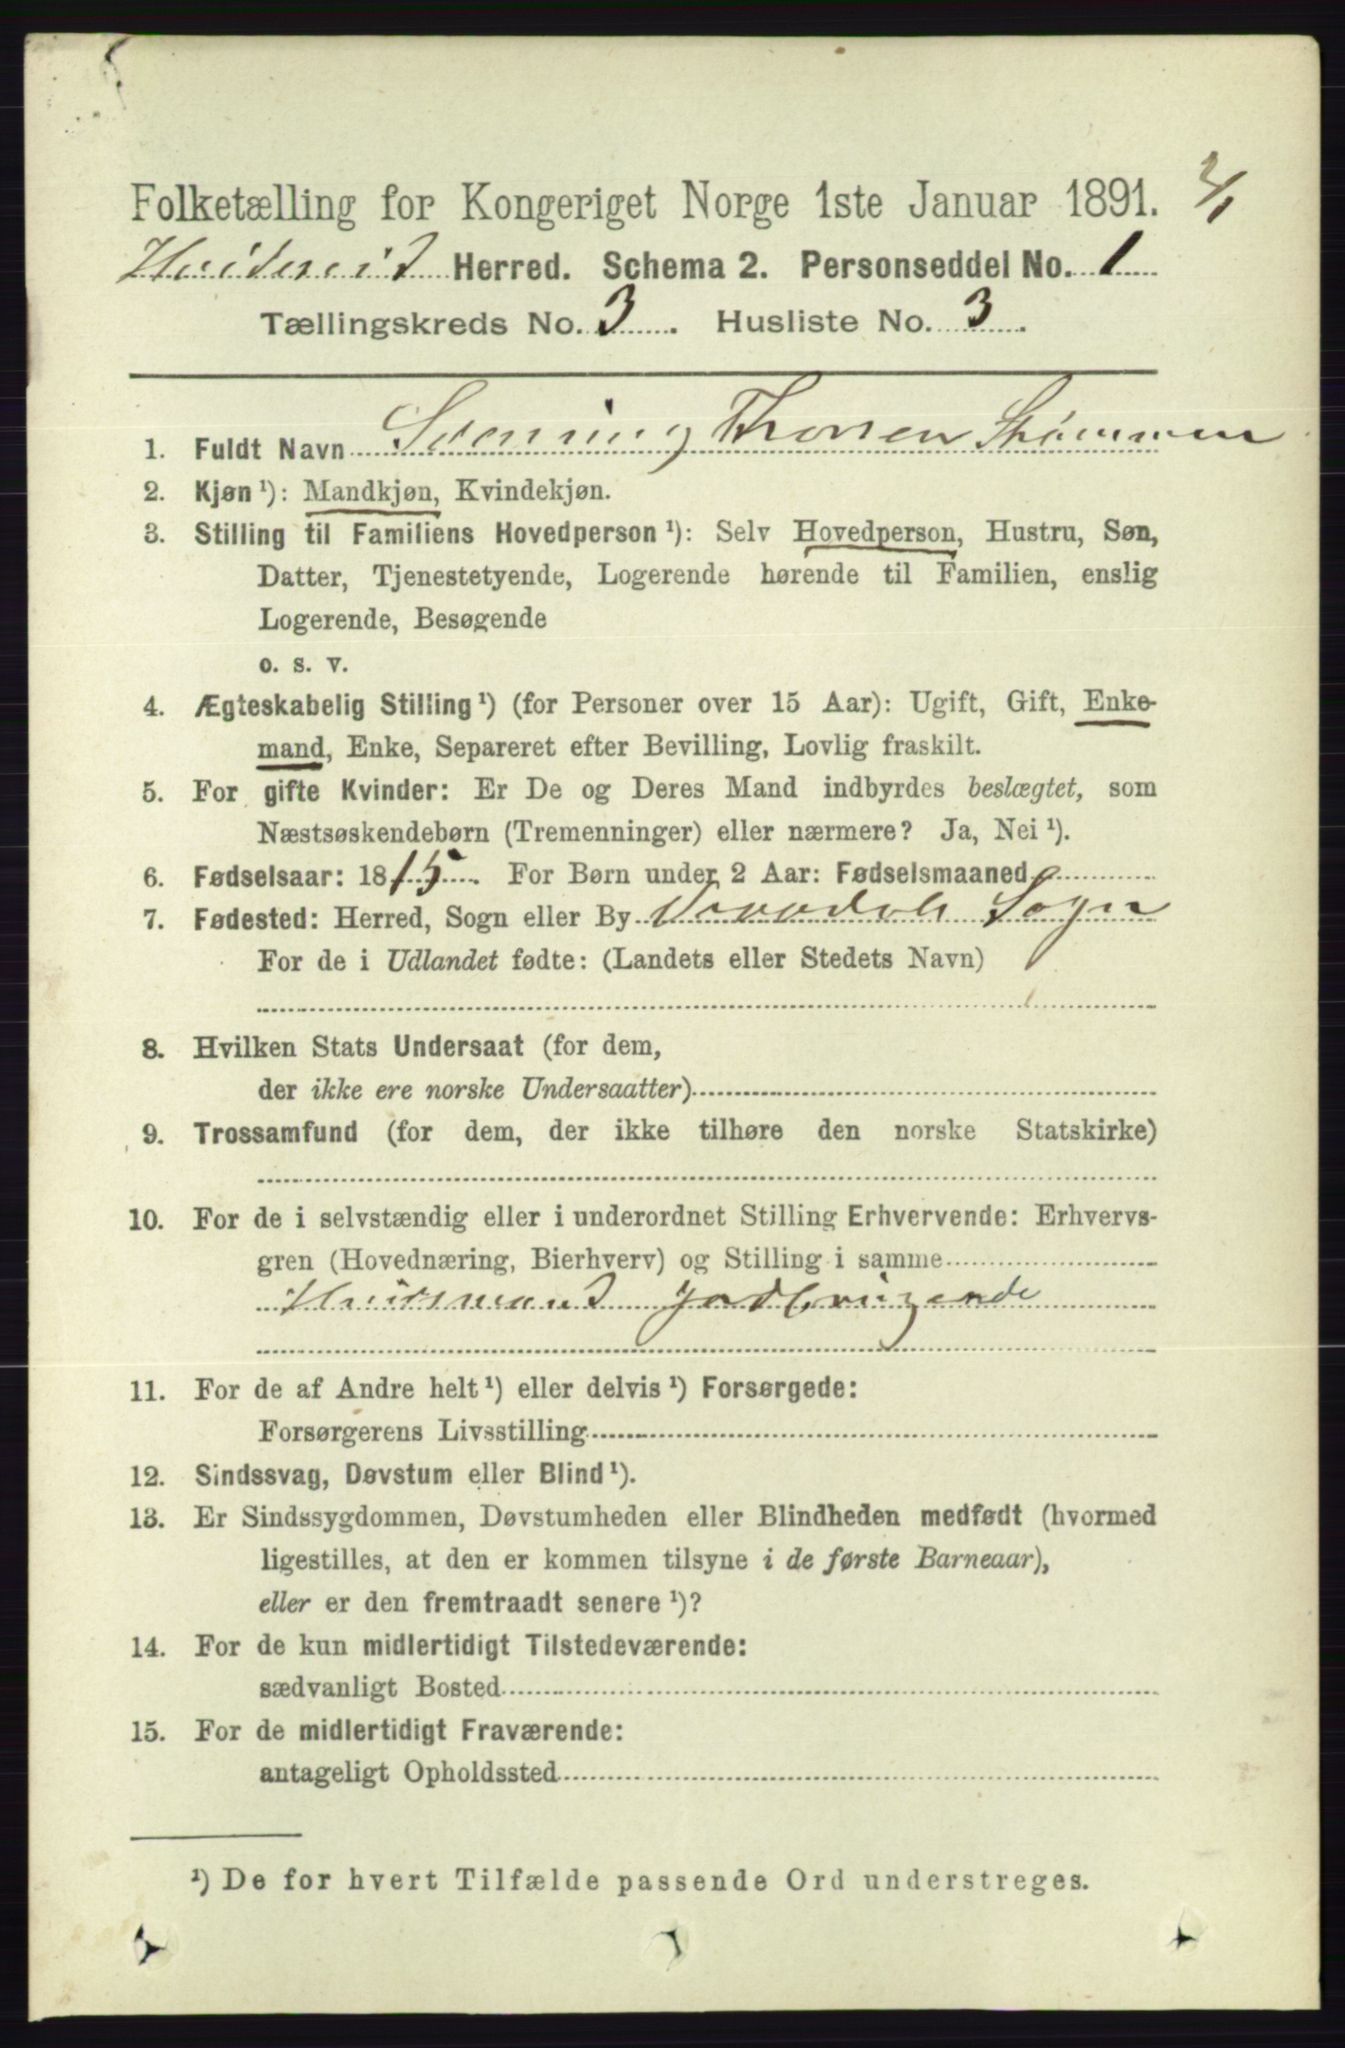 Folketælling for Kongeriget Norge 1ste Januar 1891. 3/1
Hvideseid Herred. Schema 2. Personseddel No. 1
Tællingskreds No. 3. Husliste No. 3.
1. Fuldt Navn Svenning Thorsen Strømmen
2. Kjøn ¹): Mandkjøn, Kvindekjøn.
3. Stilling til Familiens Hovedperson ¹): Selv Hovedperson, Hustru, Søn,
Datter, Tjenestetyende, Logerende hørende til Familien, enslig
Logerende, Besøgende
o. s. v.
4. Ægteskabelig Stilling ¹) (for Personer over 15 Aar): Ugift, Gift, Enke-
mand, Enke, Separeret efter Bevilling, Lovlig fraskilt.
5. For gifte Kvinder: Er De og Deres Mand indbyrdes beslægtet, som
Næstsøskendebørn (Tremenninger) eller nærmere? Ja, Nei ¹).
6. Fødselsaar: 1815. For Børn under 2 Aar: Fødselsmaaned
7. Fødested: Herred, Sogn eller By Vraadals Sogn
For de i Udlandet fødte: (Landets eller Stedets Navn)
8. Hvilken Stats Undersaat (for dem,
der ikke ere norske Undersaatter)
9. Trossamfund (for dem, der ikke tilhøre den norske Statskirke)
10. For de i selvstændig eller i underordnet Stilling Erhvervende: Erhvervs-
gren (Hovednæring, Bierhverv) og Stilling i samme
Huusmand jordbrugende
11. For de af Andre helt ¹) eller delvis ¹) Forsørgede:
Forsørgerens Livsstilling
12. Sindssvag, Døvstum eller Blind ¹).
13. Er Sindssygdommen, Døvstumheden eller Blindheden medfødt (hvormed
ligestilles, at den er kommen tilsyne i de første Barneaar),
eller er den fremtraadt senere ¹)?
14. For de kun midlertidigt Tilstedeværende:
sædvanligt Bosted
15. For de midlertidigt Fraværende:
antageligt Opholdssted
¹) De for hvert Tilfælde passende Ord understreges.